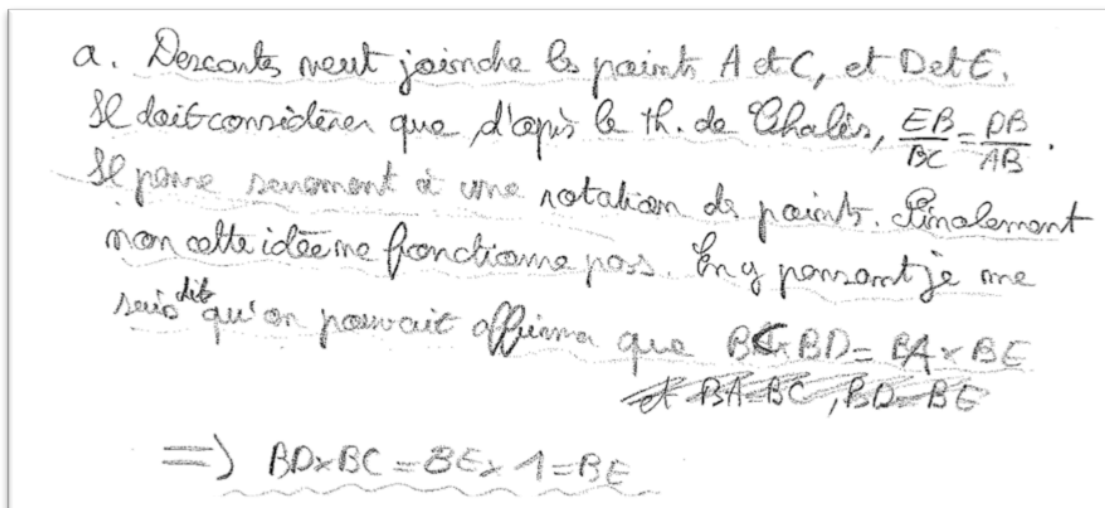 a. Descartes veut joindre les points A et C, et D et E.
Il doit considérer que, d'après le th. de Thalès, EB/BC = DB/AB.
Il pense surement à une rotation de points. Finalement
non cette idée ne fonctionne pas. En y pensant je me
suis dit qu'on pouvait affirmer que BC × BD = BA × BE
et BA=BC, BD=BE
=> BD×BC = BE × 1 = BE